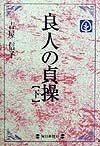 吉屋信子
良人の貞操
[下]
毎日新聞社